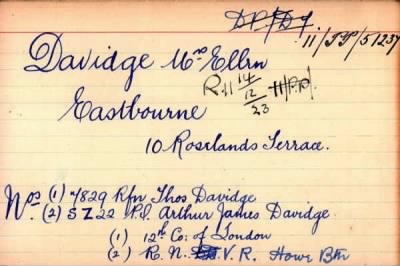 DP/D7.
11/TP/51237
Davidge Mrs Ellen
R11 14/12/23 11/P.P.
Eastbourne
10 Roselands Terrace.
Nos (1) 4829 Rfn Thos Davidge
(2) S Z 22 P.O. Arthur James Davidge
(1) 12th Co: of London
(2) R.N.V.R. Howe Btn